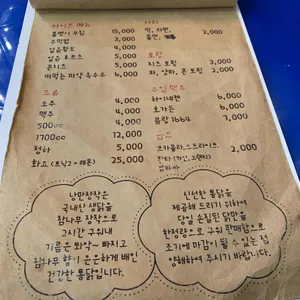 사이드 메뉴
골뱅이 무침 15,000
주먹밥 3,000
얼음황도 4,000
얼음 후르츠 5,000
콘치즈 5,000
떠먹는 마약 옥수수 6,000
사리
떡, 라면, 2,000
쫄면,
토핑
치즈 토핑 3,000
파, 양파, 콘 토핑 2,000
주류
소주 4,000
맥주 4,000
500cc 4,000
1700cc 12,000
청하 5,000
화요 (토닉2+레몬) 25,000
수입 맥주
하이네켄 6,000
호가든 6,000
블랑1664 7,000
음료
코카콜라, 스프라이트 2,000
낭만장작은
국내산 생닭을
참나무 장작으로
2시간 구워내
기름은 쫘악~ 빠지고
참나무 향이 은은하게 배인
건강한 통닭입니다.
신선한 통닭을
제공해 드리기 위하여
당일 손질된 닭만을
한정량으로 구워 판매함으로
조기에 마감이 될 수 있는 점
양해하여 주시기 바랍니다.